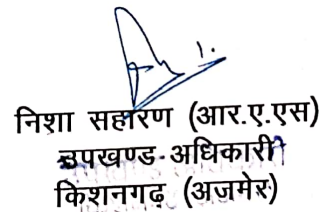 निशा सहारण (आर.ए.एस)
उपखण्ड अधिकारी
किशनगढ़ (अजमेर)